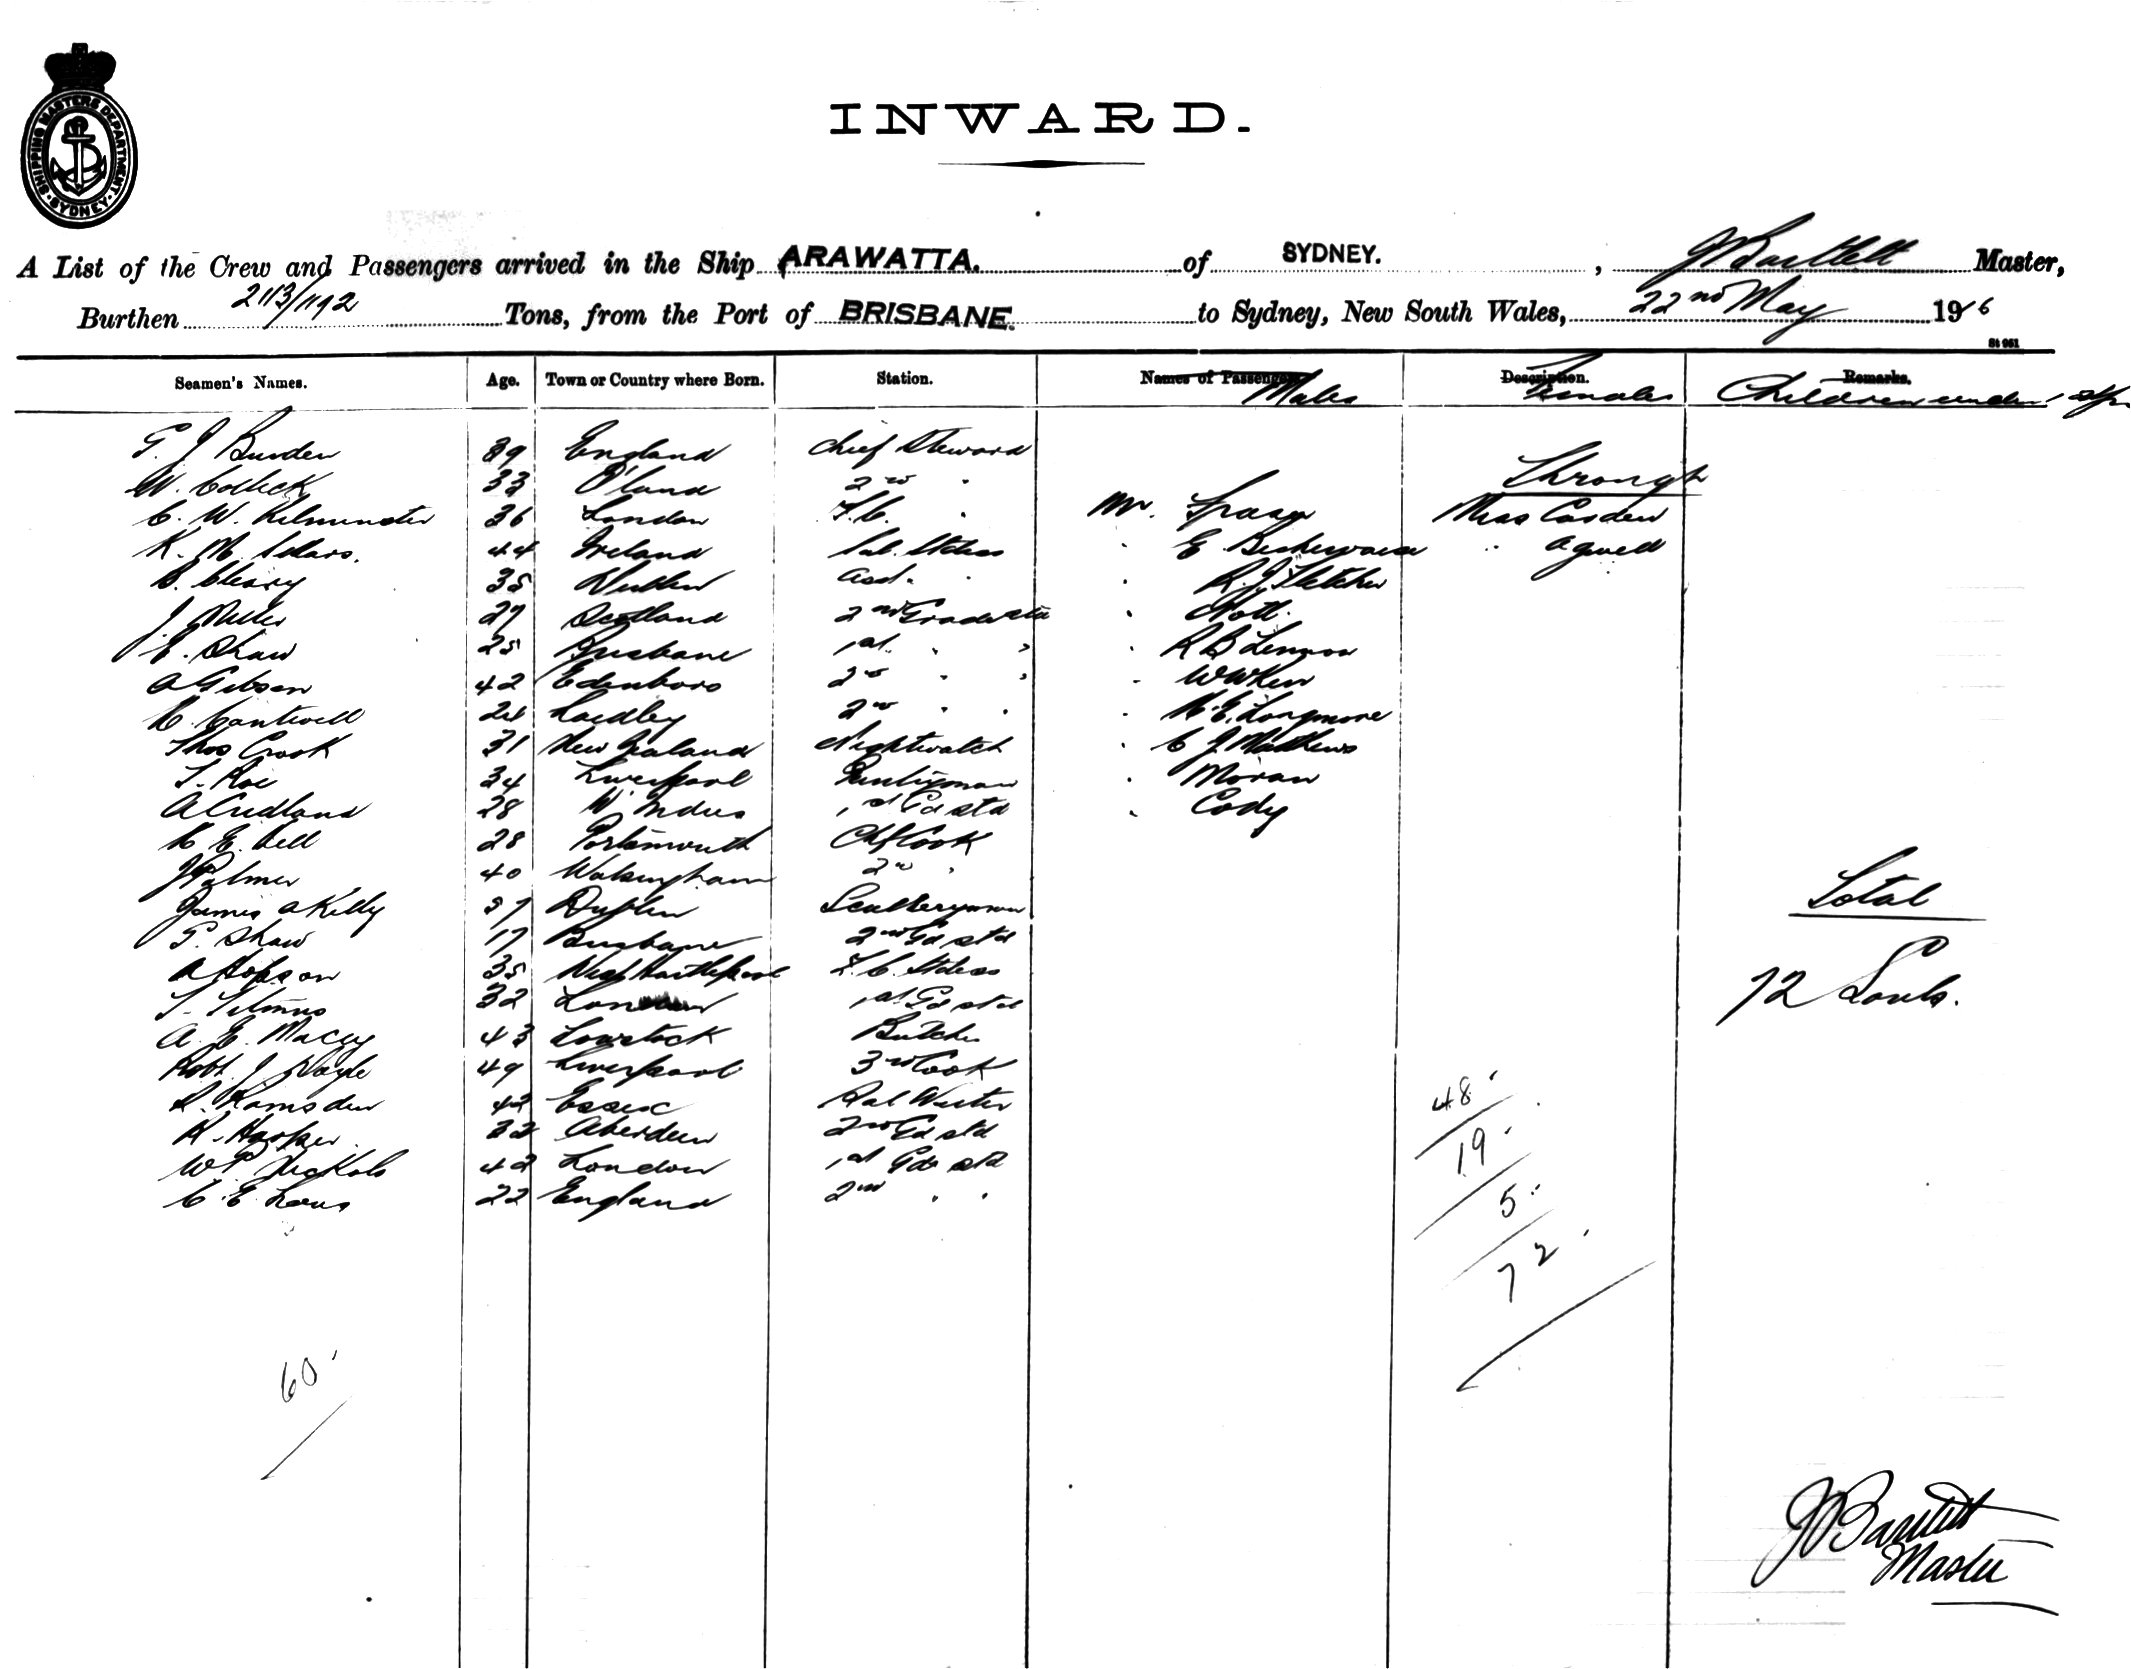 SHIPPING MASTERS DEPARTMENT
SYDNEY
INWARD.
A List of the Crew and Passengers arrived in the Ship ARAWATTA. of SYDNEY. , J Bartlett Master,
Burthen 2113/1192 Tons, from the Port of BRISBANE. to Sydney, New South Wales, 22nd May 1916
St 961
Seamen's Names. Age. Town or Country where Born. Station. Names of Passengers Description. Remarks.
Males Females Children under
G. J Burden 39 England Chief Steward
Through
W. Colleck 33 Q'land 2nd "
C. W. Kilminster 36 London F.C. " Mr. Fraser Miss Casden
K. M. Sellars. 44 Ireland Sal. Stdess " E " Agwell
B. Cleary 35 Dublin Asst. " " R. J. Fletcher
J. Miller 27 Scotland 2nd Grade Std " Nott.
E. Shaw 25 Brisbane 1st " " " R B Lennon
A Gibson 42 Edinboro 2nd " " " W W Ken
H. Cantwell 24 Laidley 2nd " " " H. E. Longmore
Thos Crook 31 New Zealand Nightwatch " C J Matthews
T. Roe 34 Liverpool Pantryman " Moran
A Cudland 28 W. Indies 1st Gd std " Cody
H E. Bell 28 Portsmouth Chf Cook
J Palmer 40 Walsingham 2nd "
James A Kelly 37 Dublin Sculleryman
Total
P. Shaw 17 Brisbane 2nd Gd std
A Hobson 35 West Hartlepool F. C. Stdess
72 Souls.
T. Timms 32 London 1st Gd std
A. E. Macey 43 Lowstock Butcher
Robt. J Nagle 49 Liverpool 3rd Cook
R. Ramsden 42 Essex Sal Waiter
48
K. Harper 32 Aberdeen 2nd Gd std
19
W P Nickols 42 London 1st Gde std
C. E. Laws 22 England 2nd " "
5
72
60
J Bartlett
Master